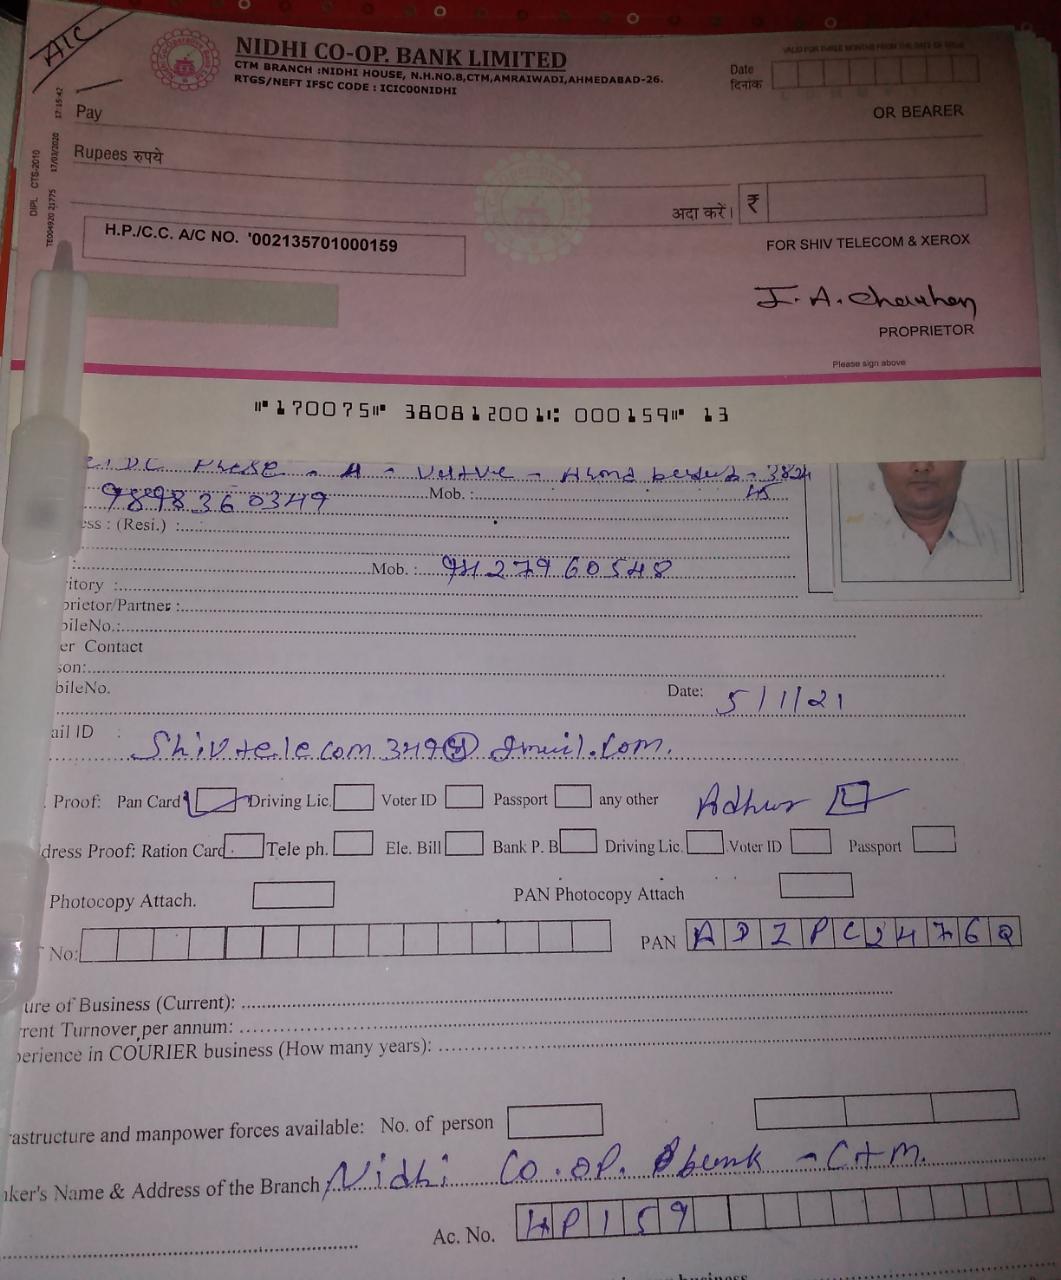 A/C
NIDHI CO-OP. BANK LIMITED
CTM BRANCH :NIDHI HOUSE, N.H.NO.8,CTM,AMRAIWADI,AHMEDABAD-26.
RTGS/NEFT IFSC CODE : ICIC00NIDHI
VALID FOR THREE MONTHS FROM THE DATE OF ISSUE
Date
दिनांक
Pay
OR BEARER
Rupees रुपये
अदा करें। ₹
H.P./C.C. A/C NO. '002135701000159
FOR SHIV TELECOM & XEROX
DIPL CTS-2010
17/03/2020 17:15:42
I. A. Chauhan
PROPRIETOR
Please sign above
⑈170075⑈ 380812001⑆ 000159⑈ 13
Phase - 4 - Vatva - 3824
45
9898360349 Mob. :
ess : (Resi.) :
: Mob. : 9427960548
itory :
prietor/Partner :
bileNo.:
er Contact
son:
bileNo.
Date: 5/1/21
ail ID : Shivtelecom349@gmail.com.
. Proof: Pan Card Driving Lic. Voter ID Passport any other Adhar
dress Proof: Ration Card Tele ph. Ele. Bill Bank P. B Driving Lic. Voter ID Passport
Photocopy Attach. PAN Photocopy Attach
No: PAN ADZPC2476Q
ure of Business (Current):
rrent Turnover per annum:
perience in COURIER business (How many years):
rastructure and manpower forces available: No. of person
nker's Name & Address of the Branch Nidhi Co.op. bank - CTM.
Ac. No. HP159
business